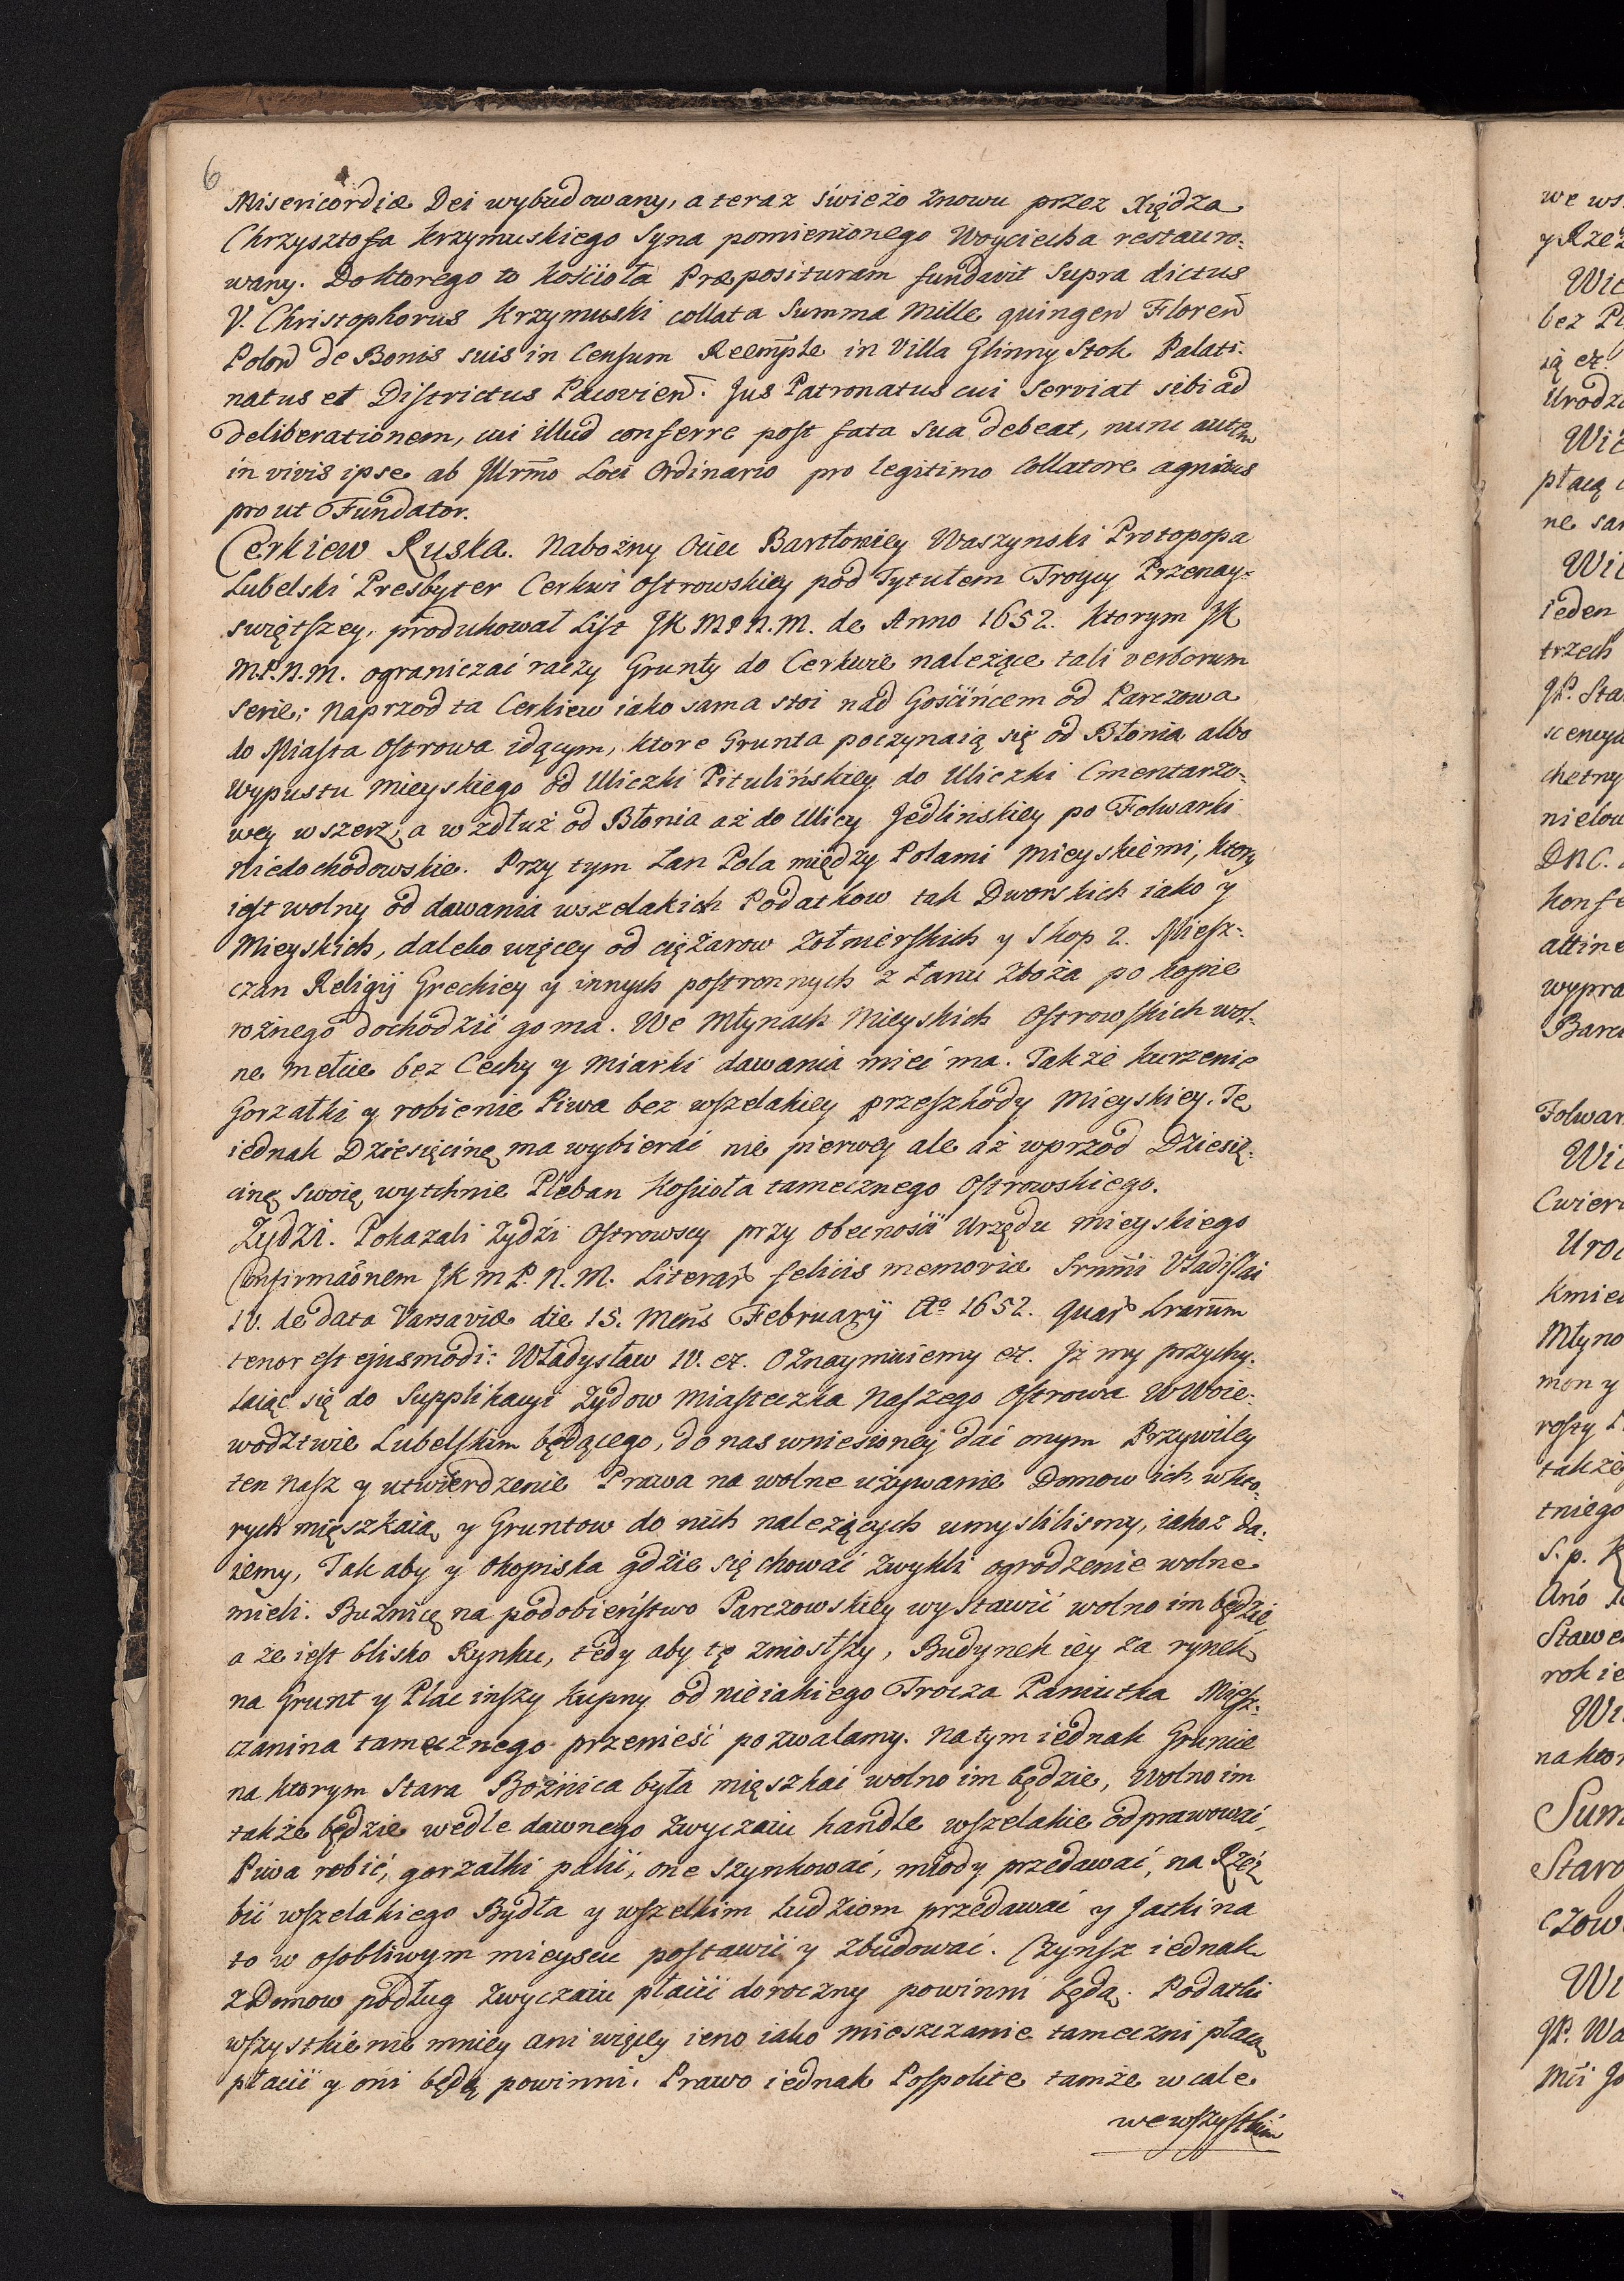 6
Misericordiæ Dei wybudowany, a teraz świeżo znowu przez Xiędza
Chrzysztofa Krzymuskiego Syna pomienionego Woyciecha restauro-
wany. Do ktorego to kościoła Præposituram fundavit Supra dictus
V. Christophorus Krzymuski collata Summa Mille quingen Floren
Polon de Bonis suis in Censum Reemple in Villa Glinny Stok Palati-
natus et Districtus Pacovien. Jus Patronatus cui Serviat sibi ad
deliberationem, cui illud conferre post fata sua debeat, nunc autem
in vivis ipse ab Illrmo Loci Ordinario pro legitimo Collatore agnitus
pro ut Fundator.
Cerkiew Ruska. Nabożny Ociec Bartłomiey Waszynski Protopopa
Lubelski Presbyter Cerkwi Ostrowskiey pod Tytułem Troycy Przenay-
swiętszey, produkował List JK M.P.N.M. de Anno 1652. ktorym JK
M.P.N.M. ograniczać raczy Grunty do Cerkwie należące tali verborum
serie: Naprzod ta Cerkiew iako sama stoi nad Gościńcem od Parczowa
do Miasta Ostrowa idącym, ktore Grunta poczynaią się od Błonia albo
Wypustu Mieyskiego od Uliczki Pitulińskiey do Uliczki Cmentarzo-
wey w szerz, a w zdłuż od Błonia aż do Ulicy Jedlińskiey po Folwarki
Niedochodowskie. Przy tym Łan Pola między Polami Mieyskiemi, ktory
iest wolny od dawania wszelakich Podatkow tak Dworskich iako y
Mieyskich, daleko więcey od ciężarow Zołnierskich y Skop 2. Miesz-
czan Religij Greckiey y innych postronnych z Łanu Zboża po kopie
rożnego dochodzić go ma. We Młynach Mieyskich Ostrowskich wol-
ne mełcie bez Cechy y Miarki dawania mieć ma. Także kurzenie
Gorzałki y robienie Piwa bez wszelakiey przeszkody Mieyskiey. Tę
iednak Dziesięcinę ma wybierać nie pierwey ale aż wprzod Dziesię-
cinę swoię wytchnie Pleban Kościoła tamecznego Ostrowskiego.
Zydzi. Pokazali Zydzi Ostrowscy przy obecności Urzędu mieyskiego
Confirmaonem JK M P. N. M. Literar felicis memoriæ Srnmi Vladislai
IV. de data Varsaviæ die 15. Mens Februarij Ao 1652. quar Lrarum
tenor est ejusmodi: Władysław IV. ez. Oznaymuiemy ez. Jż my przychy-
laiąc się do Supplikacyi Zydow Miasteczka Naszego Ostrowa w Woie-
wodztwie Lubelskim będącego, do nas wniesioney dać onym Przywiley
ten nasz y utwierdzenie Prawa na wolne używanie Domow ich, w kto-
rych mięszkaią y Gruntow do nich należących umyslilismy, iakoż da-
iemy, Tak aby y Okopiska gdzie się chować zwykli ogrodzenie wolne
mieli. Bużnicę na podobieństwo Parczowskiey wystawić wolno im będzie
a że iest blisko Rynku, tedy aby tę zniosłszy, Budynek iey za rynek
na Grunt y Plac inszy kupny od nieiakiego Trocza Paniutka Miesz-
czanina tamecznego przenieść pozwalamy. Na tym iednak Gruncie
na ktorym Stara Bożnica była mięszkać wolno im będzie, Wolno im
także będzie wedle dawnego zwyczaiu handle wszelakie odprawować,
Piwa robić, gorzałki palić, one szynkować, miody przedawać, na Rzeź
bić wszelakiego Bydła y wszelkim Ludziom przedawać y Jatki na
to w osobliwym mieyscu postawić y zbudować. Czynsz iednak
z Domow podług zwyczaiu płacić doroczny powinni będą. Podatki
wszystkie nie mniey ani więcey ieno iako Mieszczanie tameczni płacą
płacić y oni będą powinni. Prawo iednak Pospolite tamże w cale
we wszystkim